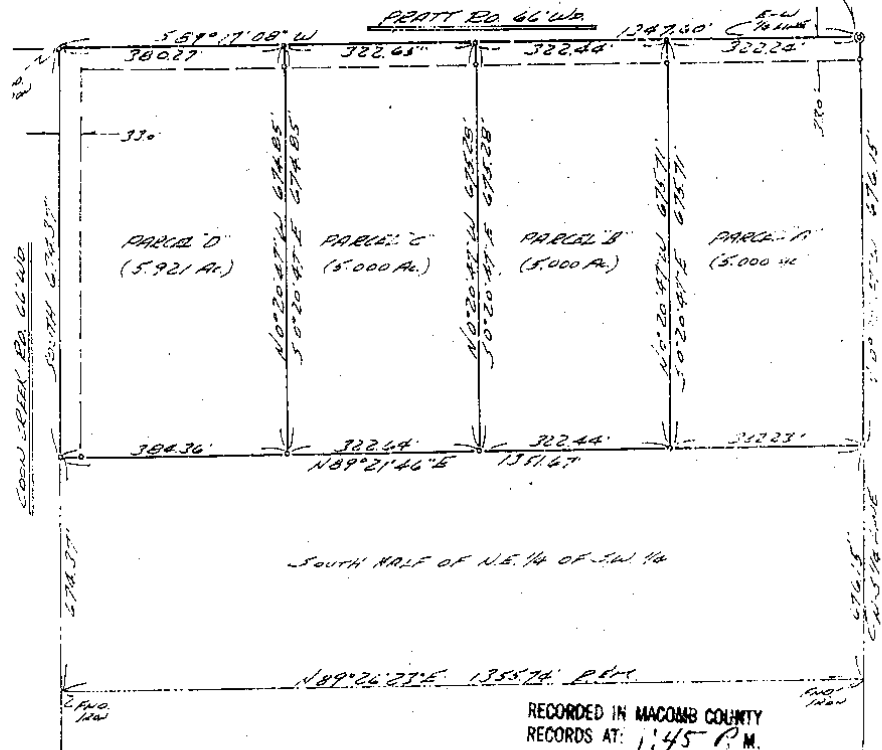 PRATT RD. 66' WD.
S 89° 17' 08" W
1347.60'
E-W
1/4 LINE
380.27'
322.65'
322.44'
322.24'
33.0'
33.0'
N 0° 20' 47" W 674.85'
S 0° 20' 47" E 674.85'
N 0° 20' 47" W 675.28'
S 0° 20' 47" E 675.28'
N 0° 20' 47" W 675.71'
S 0° 20' 47" E 675.71'
676.15'
SOUTH 674.37'
COON CREEK RD. 66' WD.
PARCEL "D"
(5.921 AC.)
PARCEL "C"
(5.000 AC.)
PARCEL "B"
(5.000 AC.)
PARCEL "A"
(5.000 AC.
384.36'
322.64'
322.44'
322.23'
N 89° 21' 46" E
1351.67'
674.37'
SOUTH HALF OF N.E. 1/4 OF S.W. 1/4
676.15'
N-S 1/4 LINE
N 89° 26' 23" E 1355.74'
FND.
IRON
FND.
IRON
RECORDED IN MACOMB COUNTY
RECORDS AT: 1:45 P. M.